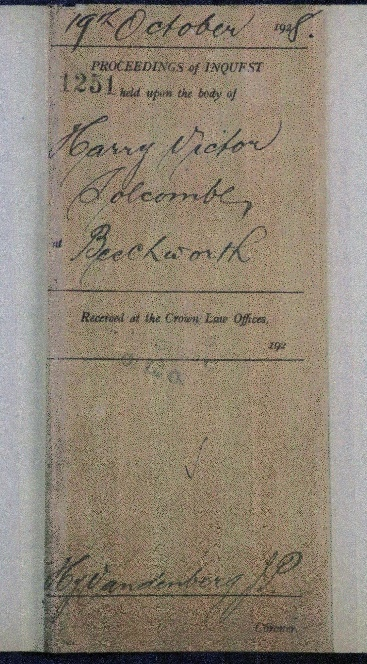 19th October 1928.
PROCEEDINGS of INQUEST
1251 held upon the body of
Harry Victor
Holcombe,
at Beechworth
Received at the Crown Law Offices,
192
Hy Vandenberg JP
Coroner.